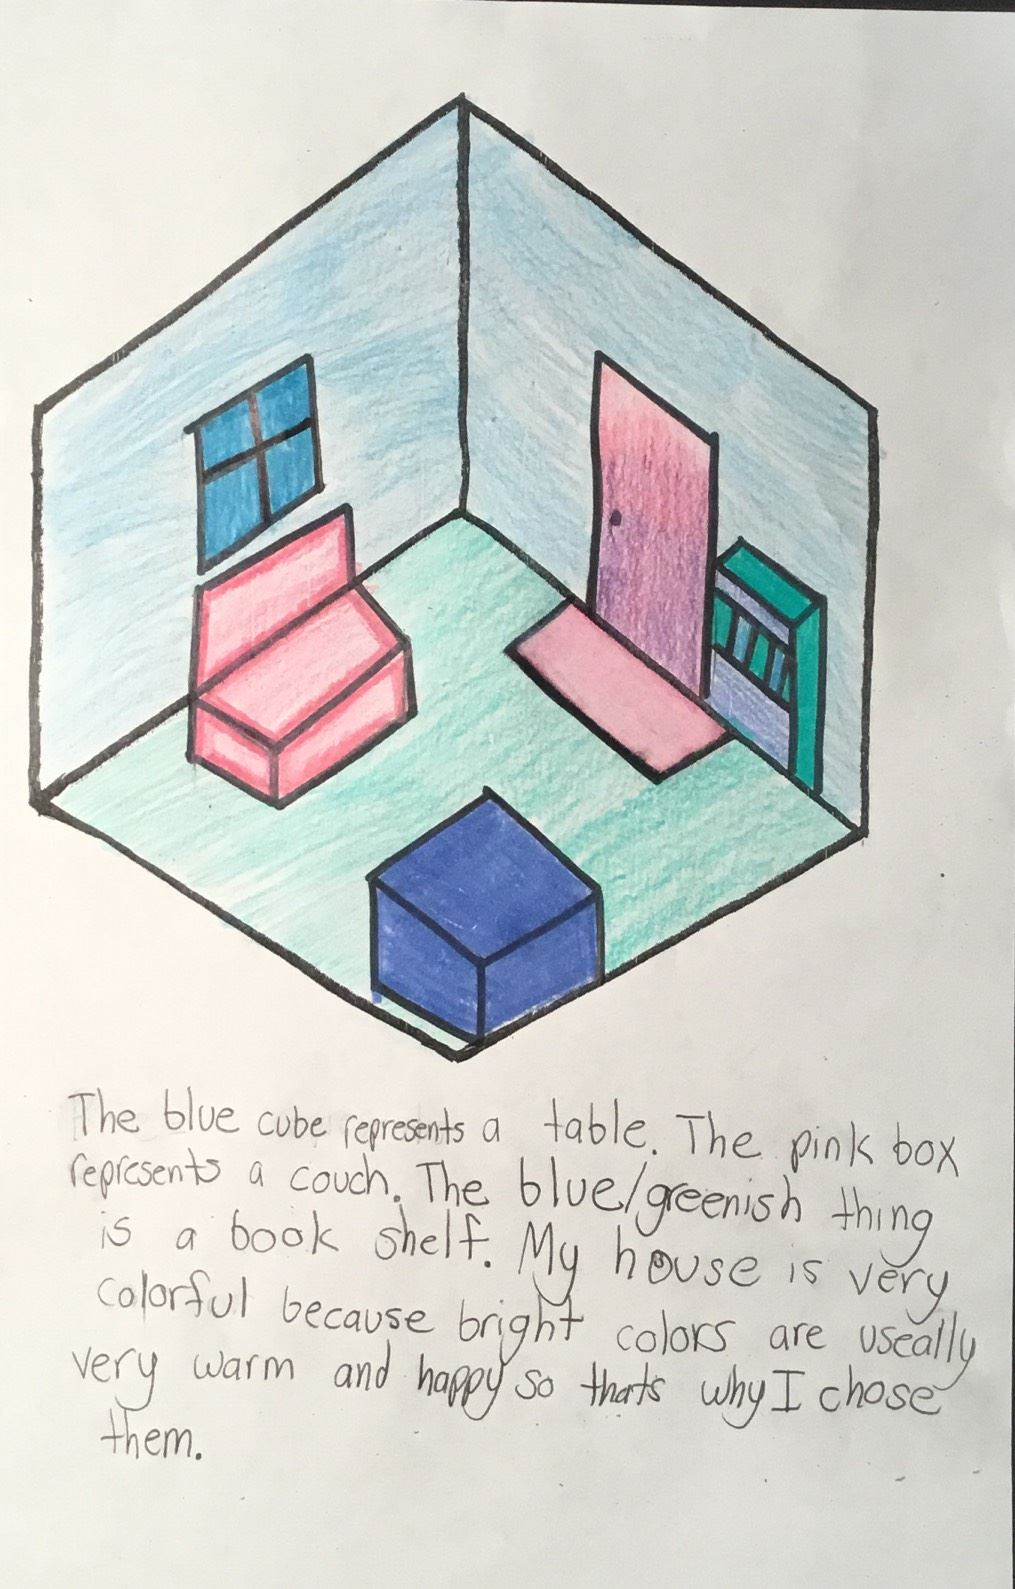 The blue cube represents a table. The pink box
represents a couch. The blue/greenish thing
is a book shelf. My house is very
colorful because bright colors are useally
very warm and happy so thats why I chose
them.